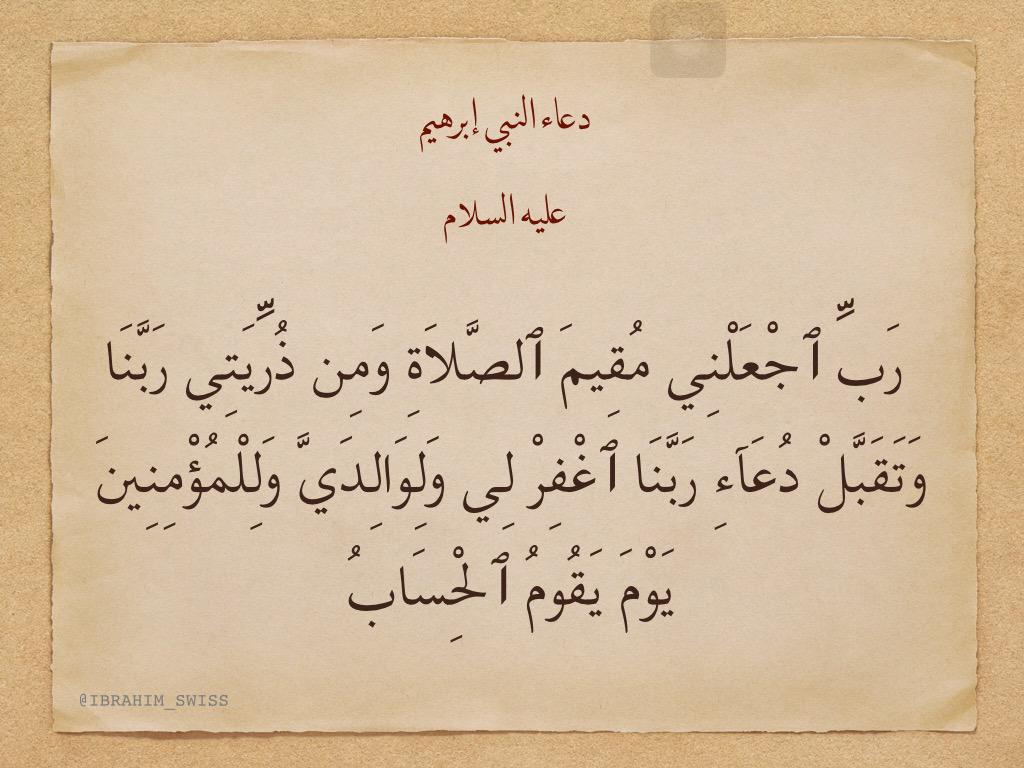 دعاء النبي إبرهيم
عليه السلام
رَبِّ ٱجْعَلْنِي مُقِيمَ ٱلصَّلاَةِ وَمِن ذُرِّيَتِي رَبَّنَا
وَتَقَبَّلْ دُعَآءِ رَبَّنَا ٱغْفِرْ لِي وَلِوَالِدَيَّ وَلِلْمُؤْمِنِينَ
يَوْمَ يَقُومُ ٱلْحِسَابُ
@IBRAHIM_SWISS